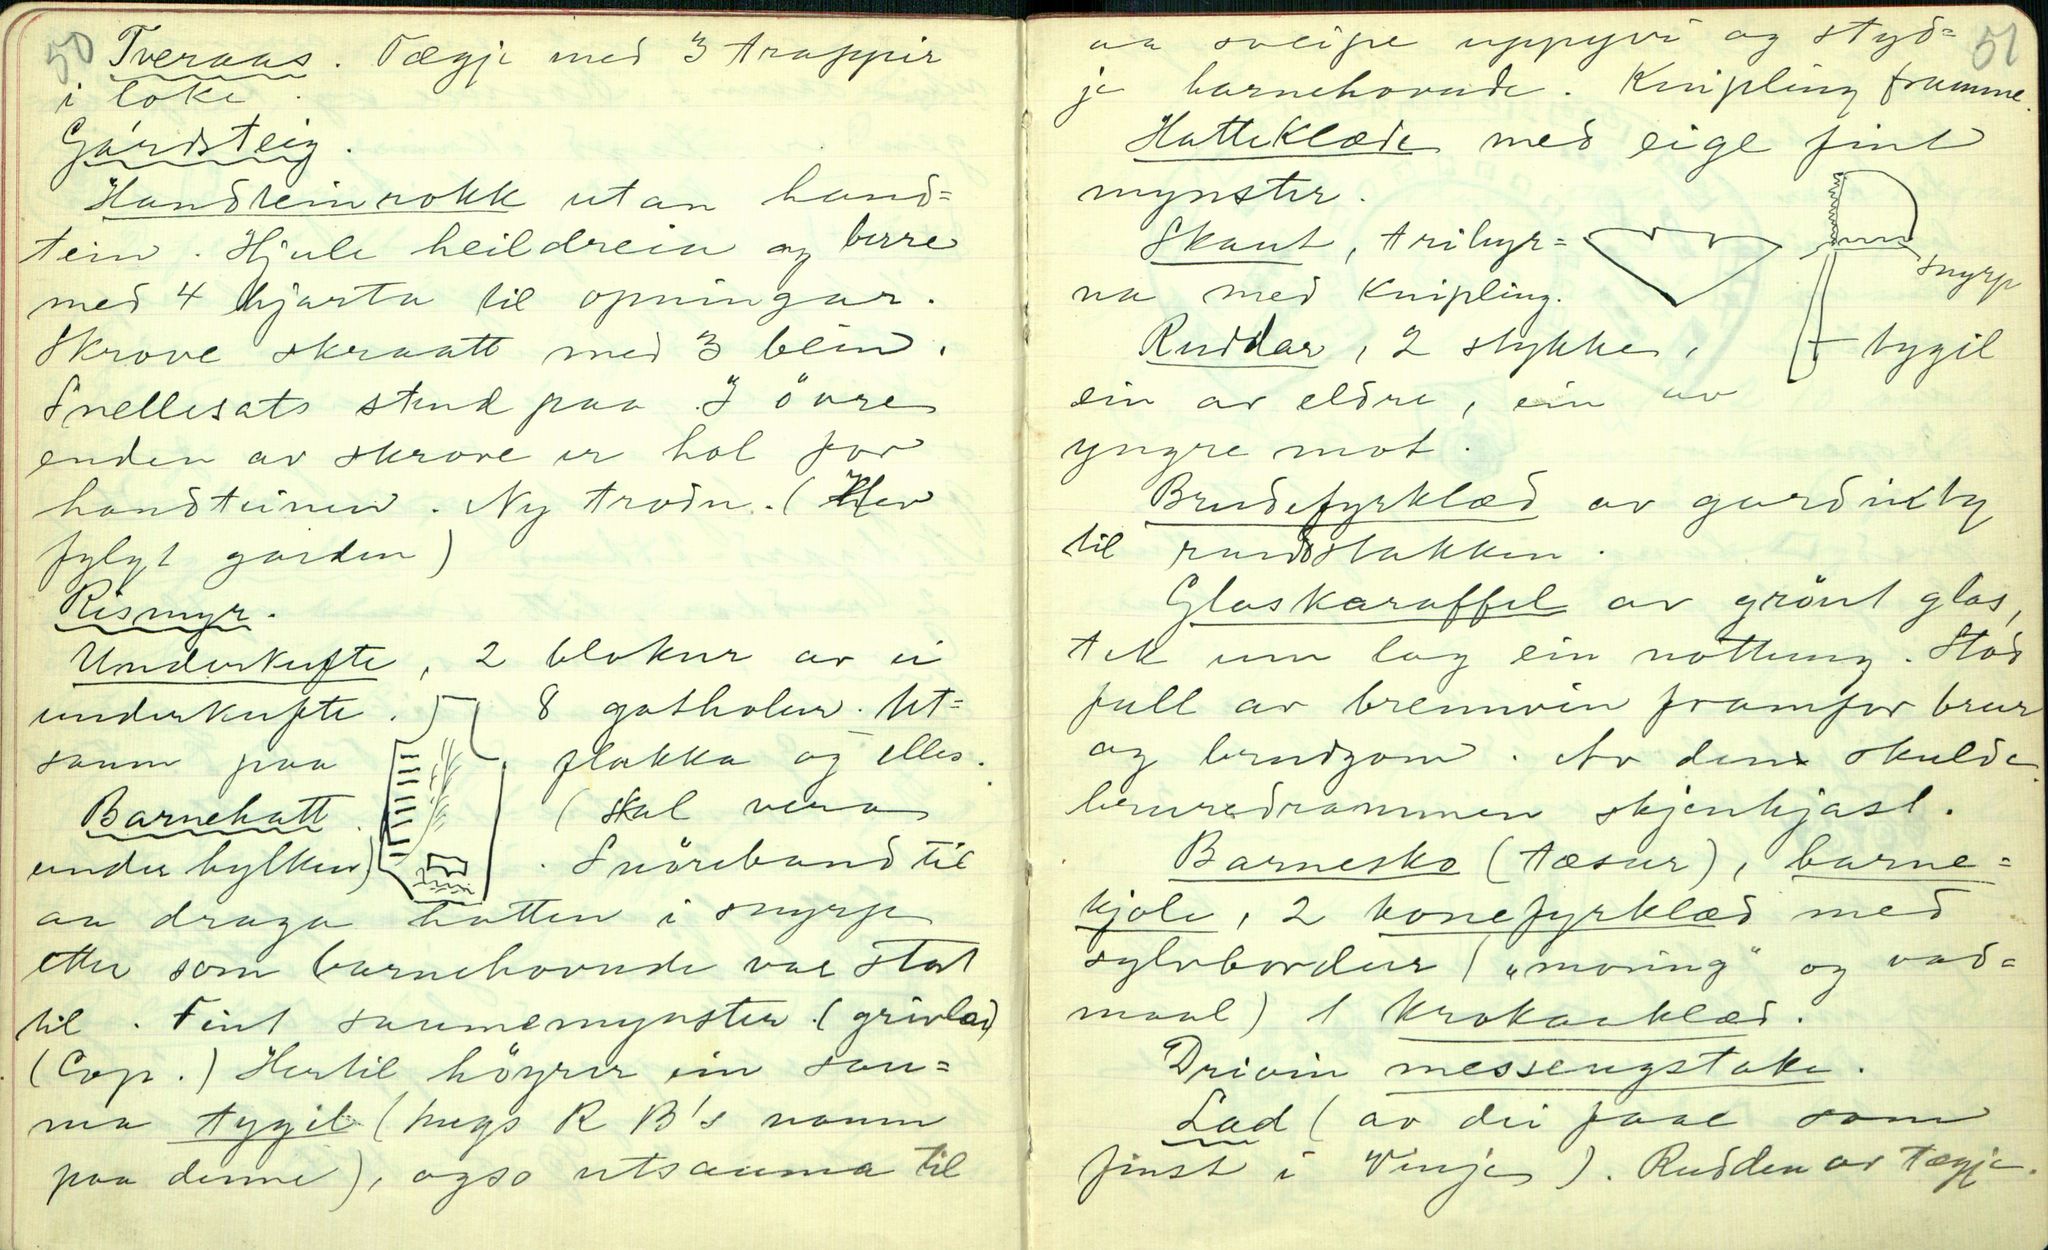 50
Tveraas. Tægje med 3 trappir
i loke.
Gárdsteig.
Handteinrokk utan hand=
tein. Hjule heildreia og berre
med 4 hjarta til opningar.
Skrove skraatt med 3 bein.
Snellesats stend paa. I övre
enden av skrove er hol for
handteinen. Ny trødn. (Hev
fylgt garden)
Rismyr.
Underkufte, 2 blokur av ei
underkufte. 8 gatholur. Ut=
saum paa flakka og elles.
Barnehatt. (skal vera
under hylken). Snöreband til
aa draga hatten i snyrp
etter som barnehovude var stort
til. Fint saumemynster. (grivlar)
(Cop.) Hertil höyrer ein sau=
ma tygil (hugs R B's namn
paa denne), ogso utsauma til
51
aa sveipe uppyvi og styd=
je barnehovude. Knipling framme.
Hatteklæde med eige fint
mynster.
Skaut, trihyr=
na med Knipling.
snyrp
tygil
Ruddar, 2 stykke,
ein av eldre, ein av
yngre mot.
Brudefyrklæd av gardinty
til rundstakken.
Glaskaraffel av grönt glas,
tek um lag ein nottung. Stod
full av brennvin framfor brur
og brudgom. Av den skulde
bruredrammen skjenkjast.
Barnesko (tæsur), barne=
kjole, 2 konefyrklæd med
sylvbordur ("moring" og vad=
maal) 1 krokaaklæd.
Drivin messengstake.
Lad (av dei faae som
finst i Vinje). Rudden av tægje.